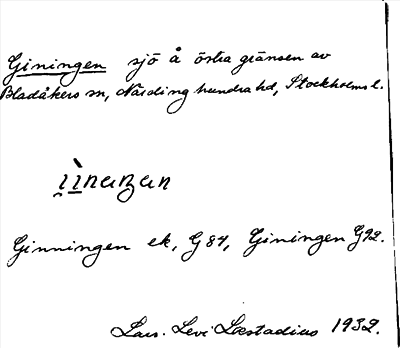 Giningen sjö å östra gränsen av
Bladåkers sn, Närdinghundra hd, Stockholms l.
Ginningen ek, G 84, Giningen G 92.
Lars. Levi Læstadius 1932.